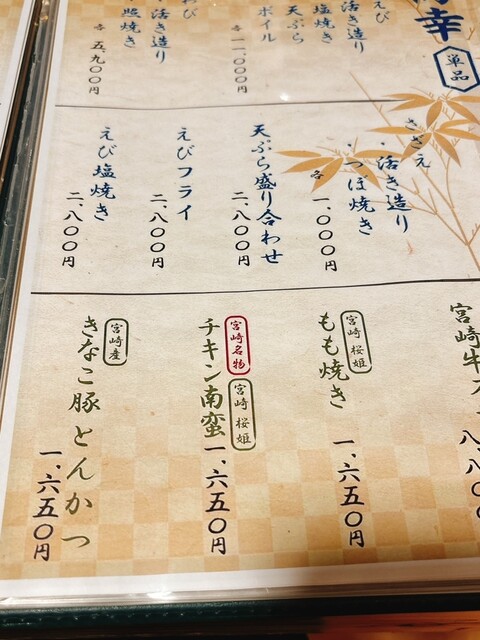 幸
単品
えび
活き造り
塩焼き
天ぷら
ボイル
各 一一、〇〇〇円
活き造り
照焼き
各 五、九〇〇円
さざえ
・活き造り
・つぼ焼き
各 一、〇〇〇円
天ぷら盛り合わせ
二、八〇〇円
えびフライ
二、八〇〇円
えび塩焼き
二、八〇〇円
宮崎牛
八、八〇
宮崎 桜姫
もも焼き
一、六五〇円
宮崎名物
宮崎 桜姫
チキン南蛮
一、六五〇円
宮崎産
きなこ豚とんかつ
一、六五〇円